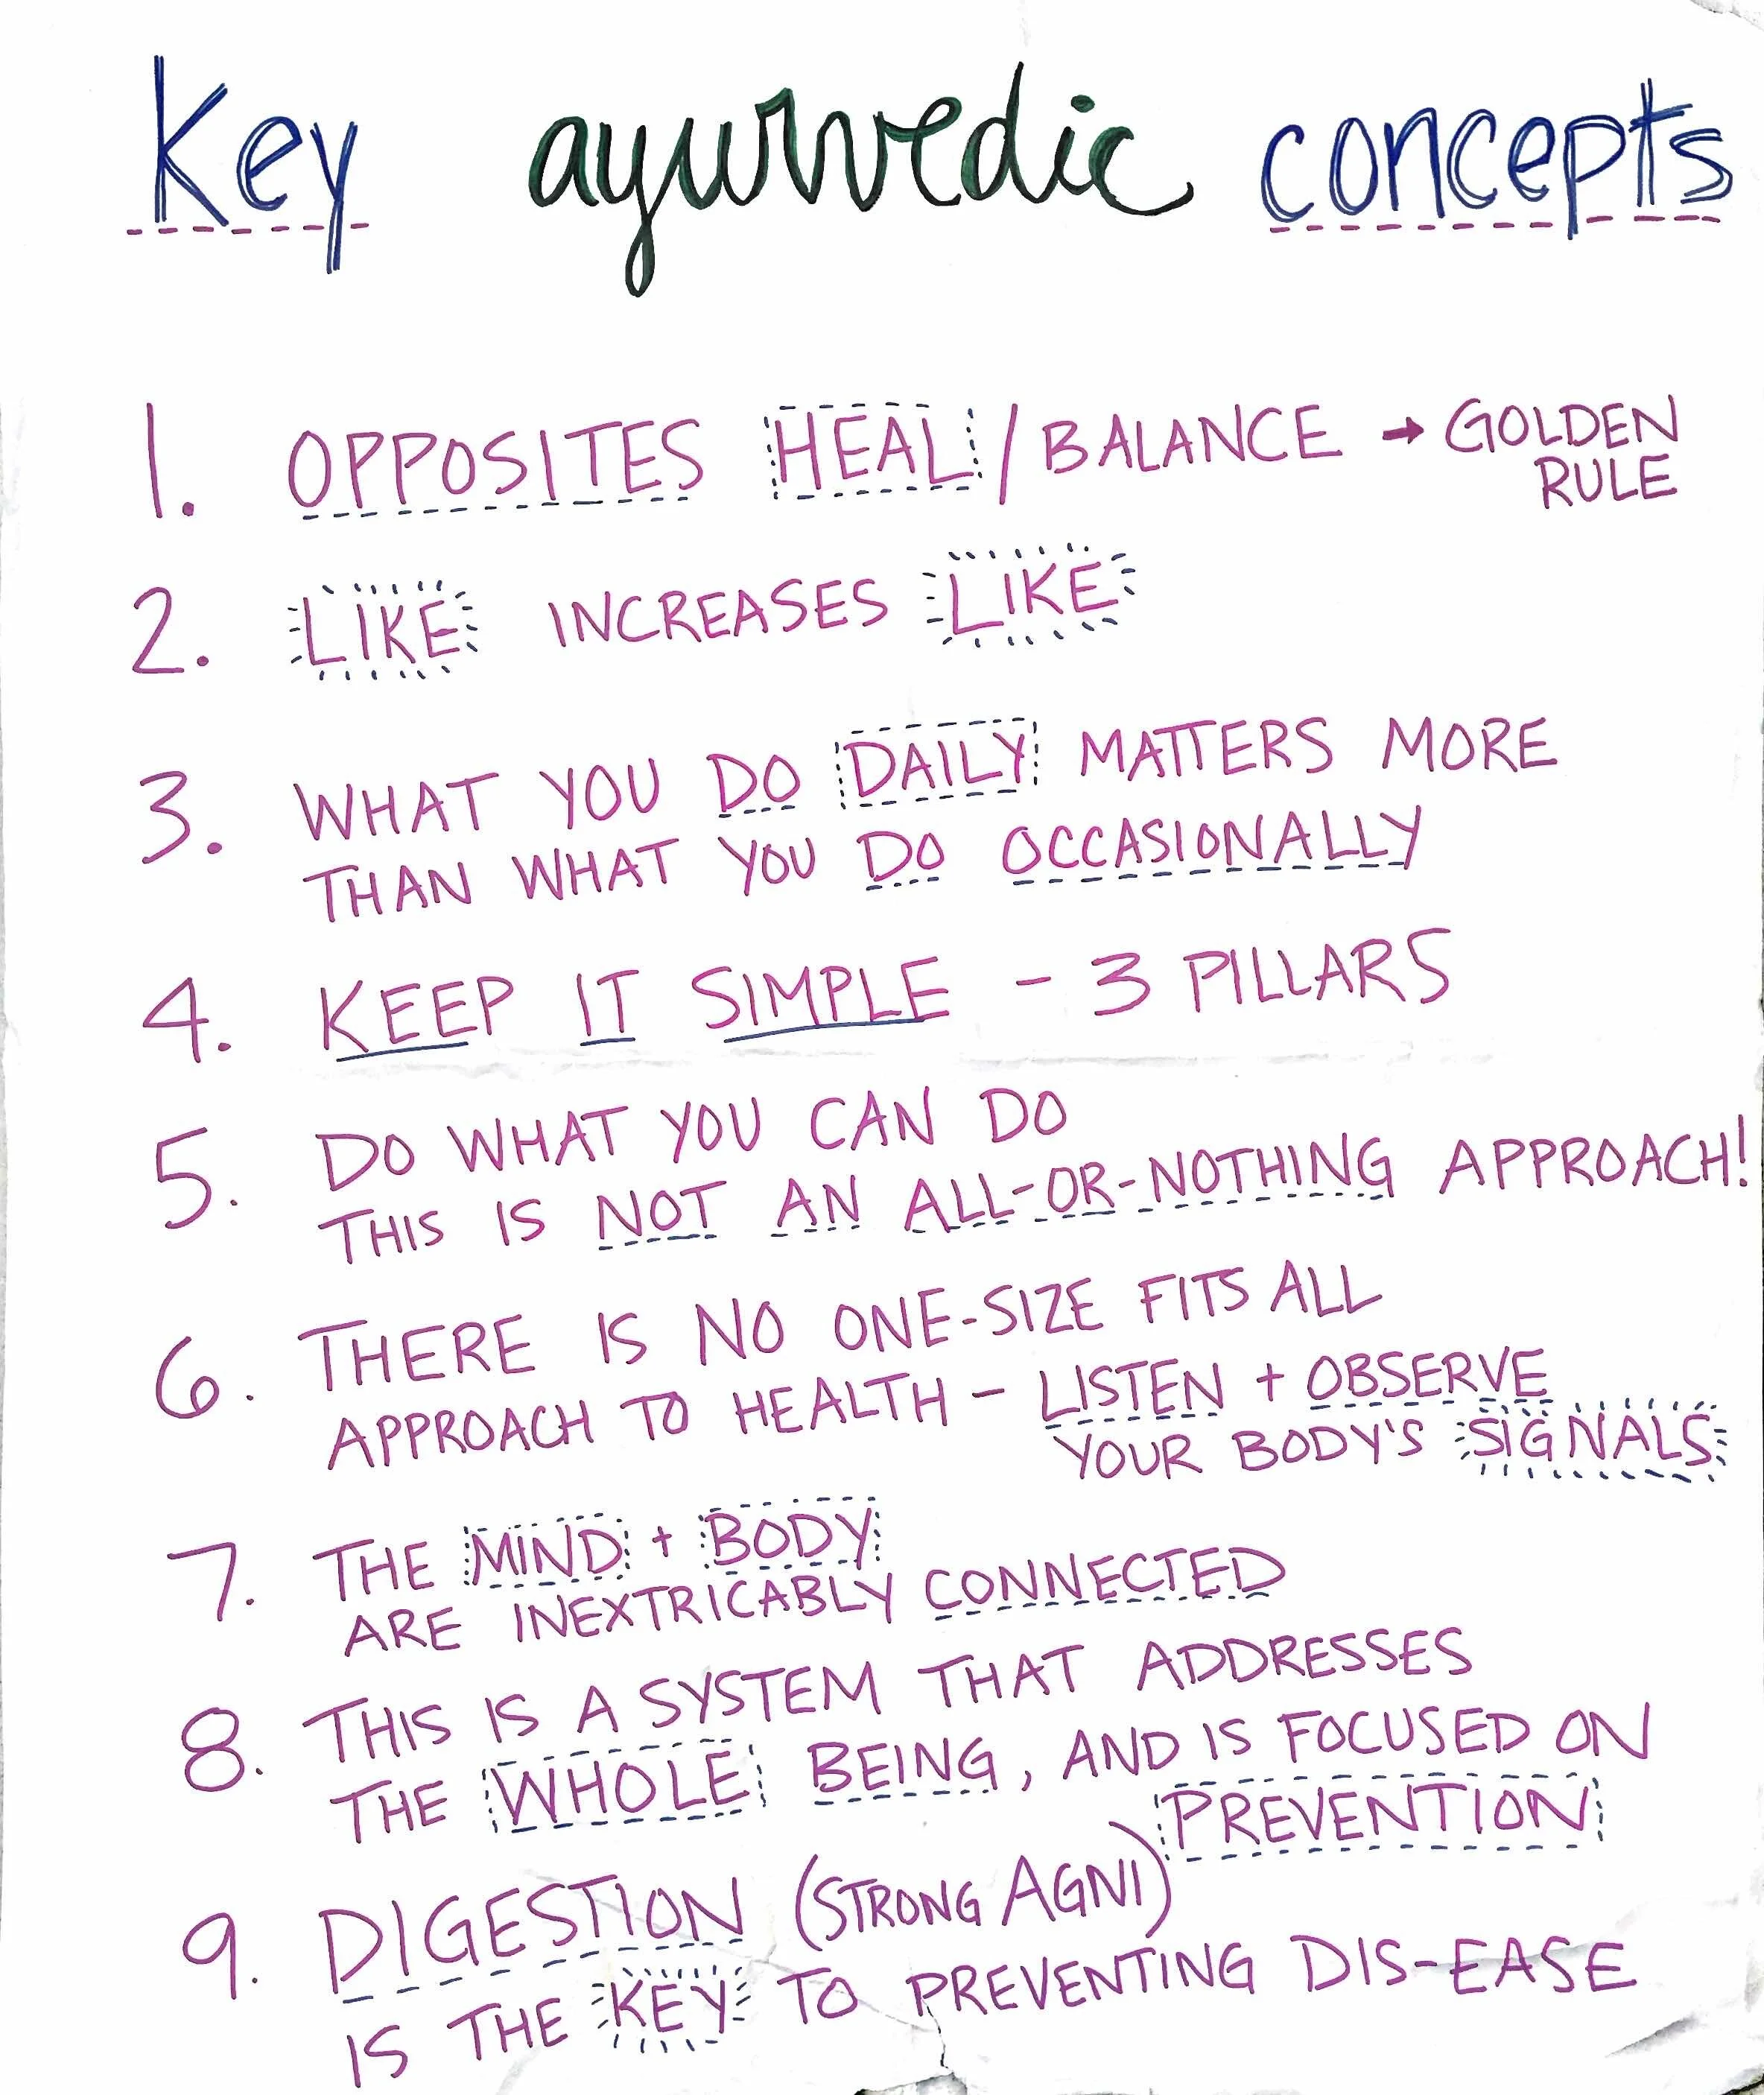 Key ayurvedic concepts
1. OPPOSITES HEAL / BALANCE → GOLDEN
RULE
2. LIKE INCREASES LIKE
3. WHAT YOU DO DAILY MATTERS MORE
THAN WHAT YOU DO OCCASIONALLY
4. KEEP IT SIMPLE - 3 PILLARS
5. DO WHAT YOU CAN DO
THIS IS NOT AN ALL-OR-NOTHING APPROACH!
6. THERE IS NO ONE-SIZE FITS ALL
APPROACH TO HEALTH - LISTEN + OBSERVE
YOUR BODY'S SIGNALS
7. THE MIND + BODY
ARE INEXTRICABLY CONNECTED
8. THIS IS A SYSTEM THAT ADDRESSES
THE WHOLE BEING, AND IS FOCUSED ON
PREVENTION
9. DIGESTION (STRONG AGNI)
IS THE KEY TO PREVENTING DIS-EASE